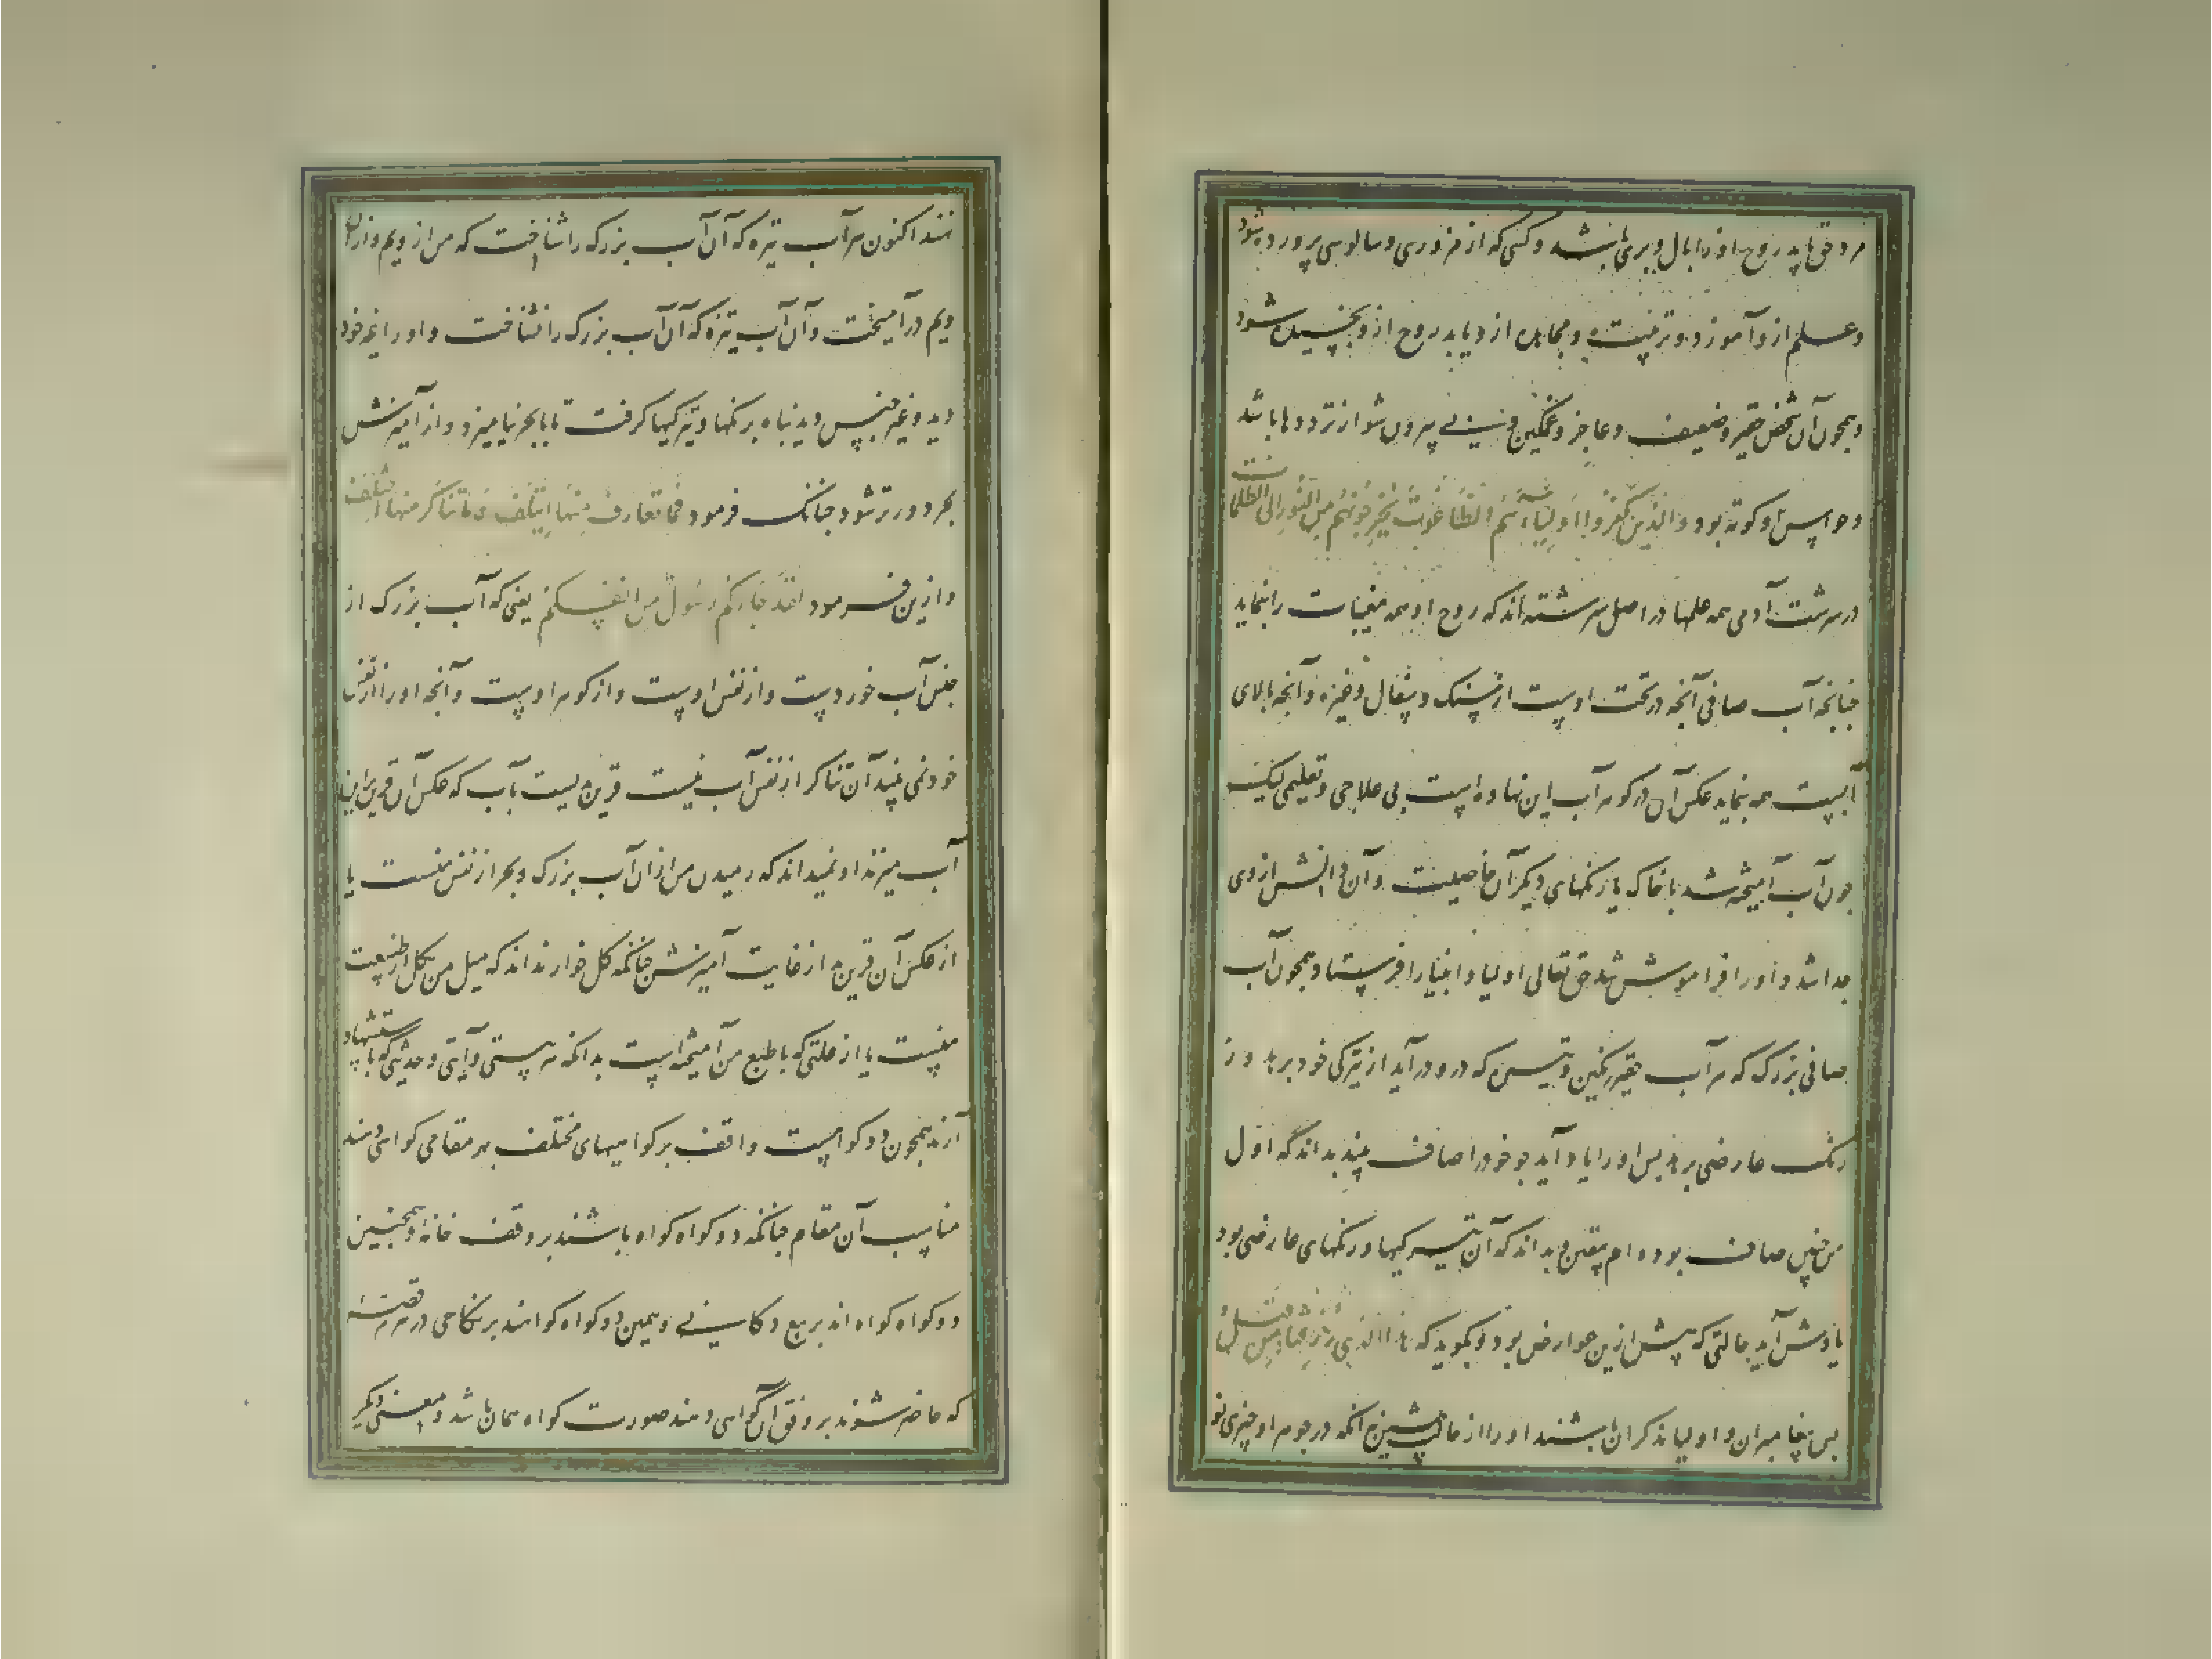 مرد حق یابد روح او را بال و پر می باشد و کسی که از مزوری و سالوسی پرورده شود
و علم ازو آموزد و تربیت و مجاهده ازو یابد روح ازو بخسیس شود
و همچون آن شخص حقیر و ضعیف و عاجز و غمگین و بی بیرون شو از ترددها باشد
و حواس او کوته بود والذین کفروا اولیاءهم الطاغوت یخرجونهم من النور الی الظلمات
در سرشت آدمی همه علمها در اصل سرشته اند که روح او همه مغیبات را بنماید
جنانجه آب صافی آنجه در تحت اوست از سنک و سفال و غیره و آنجه بالای
آبست همه بنماید عکس آن در کوهر آب این نهاده است بی علاجی و تعلیمی لیک
جون آب آمیخته شد با خاک یا رنکهای دیکر آن خاصیت و آن دانش از وی
جدا شد و او را فراموش شد حق تعالی اولیا و انبیا را فرستاد همجون آب
صافی بزرک که هر آب حقیر رنکین و تیره که درو درآید از تیرکی خود برهد و ز
رنک عارضی برهد پس او را یاد آید جو خود را صاف بیند بداند که اول
من جنین صاف بوده ام بیقین و بداند که آن تیرکیها و رنکهای عارضی بود
یادش آید حالتی که پیش ازین عوارض بود و بکوید که هذا الذی رزقنا من قبل
پس پیغامبران و اولیا مذکران باشند او را از ماضی پیشین نه آنکه در جوهر او جیزی نو
نهند اکنون هر آب تیره که آن آب بزرک را شناخت که من از ویم و ازان
ویم درآمیخت و آن آب تیره که آن آب بزرک را نشناخت و او را غیر خود
دید و غیر جنس دید پناه برنکها و تیرکیها کرفت تا با بحر نیامیزد و از آمیزش
بحر دورتر شود جنانک فرمود فما تعارف منها ایتلف و ما تناکر منها اختلف
و ازین فرمود لقد جاءکم رسول من انفسکم یعنی که آب بزرک از
جنس آب خوردست و از نفس اوست و از کوهر اوست و آنجه او را از نفس
خود نمی بیند آن تناکر از نفس آب نیست قرین بدیست با آب که عکس آن قرین بر این
آب میزند او نمیداند که رمیدن من ازان آب بزرک و بحر از نفس منست یا
از عکس آن قرین بد از غایت آمیزش جنانکه کل خوار نداند که میل من بکل از طبیعت
منست یا از علتی که با طبع من آمیخته است بدانکه هر بیتی و آیتی و حدیثی که باستشهاد
آرند همجون دو کواهست واقف بر کواهیهای مختلف بهر مقامی کواهی دهند
مناسب آن مقام جنانکه دو کواه کواه باشند بر وقف خانه و همجنین
دو کواه کواه اند بر بیع دکانی و همین دو کواه کواهند بر نکاحی در هر قضیه
که حاضر شوند بر وفق آن کواهی دهند صورت کواه همان باشد و معنی دیکر